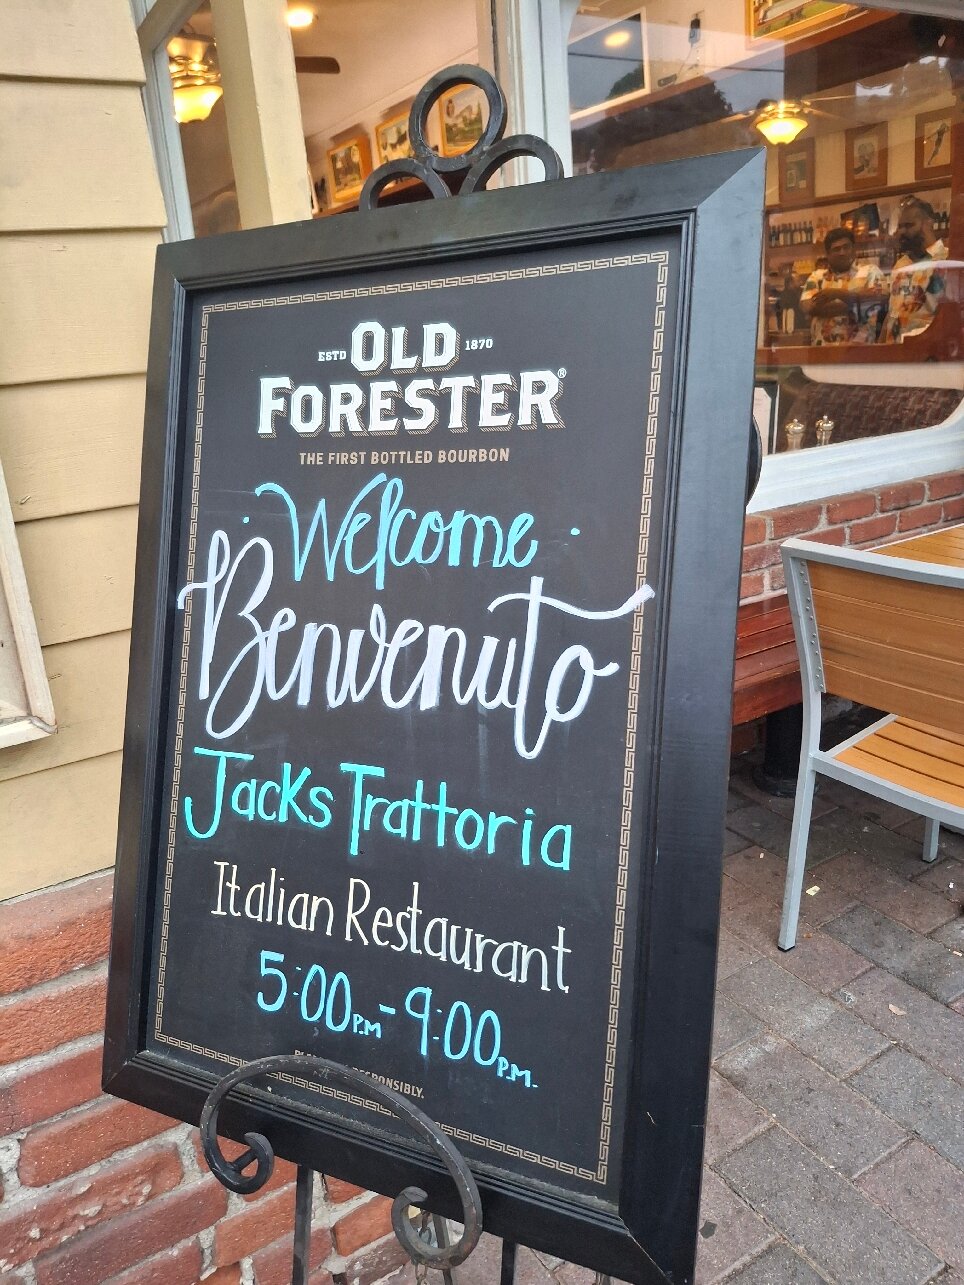 ESTD OLD 1870
FORESTER®
THE FIRST BOTTLED BOURBON
Welcome
Benvenuto
Jacks Trattoria
Italian Restaurant
5:00 P.M - 9:00 P.M.
RESPONSIBLY.